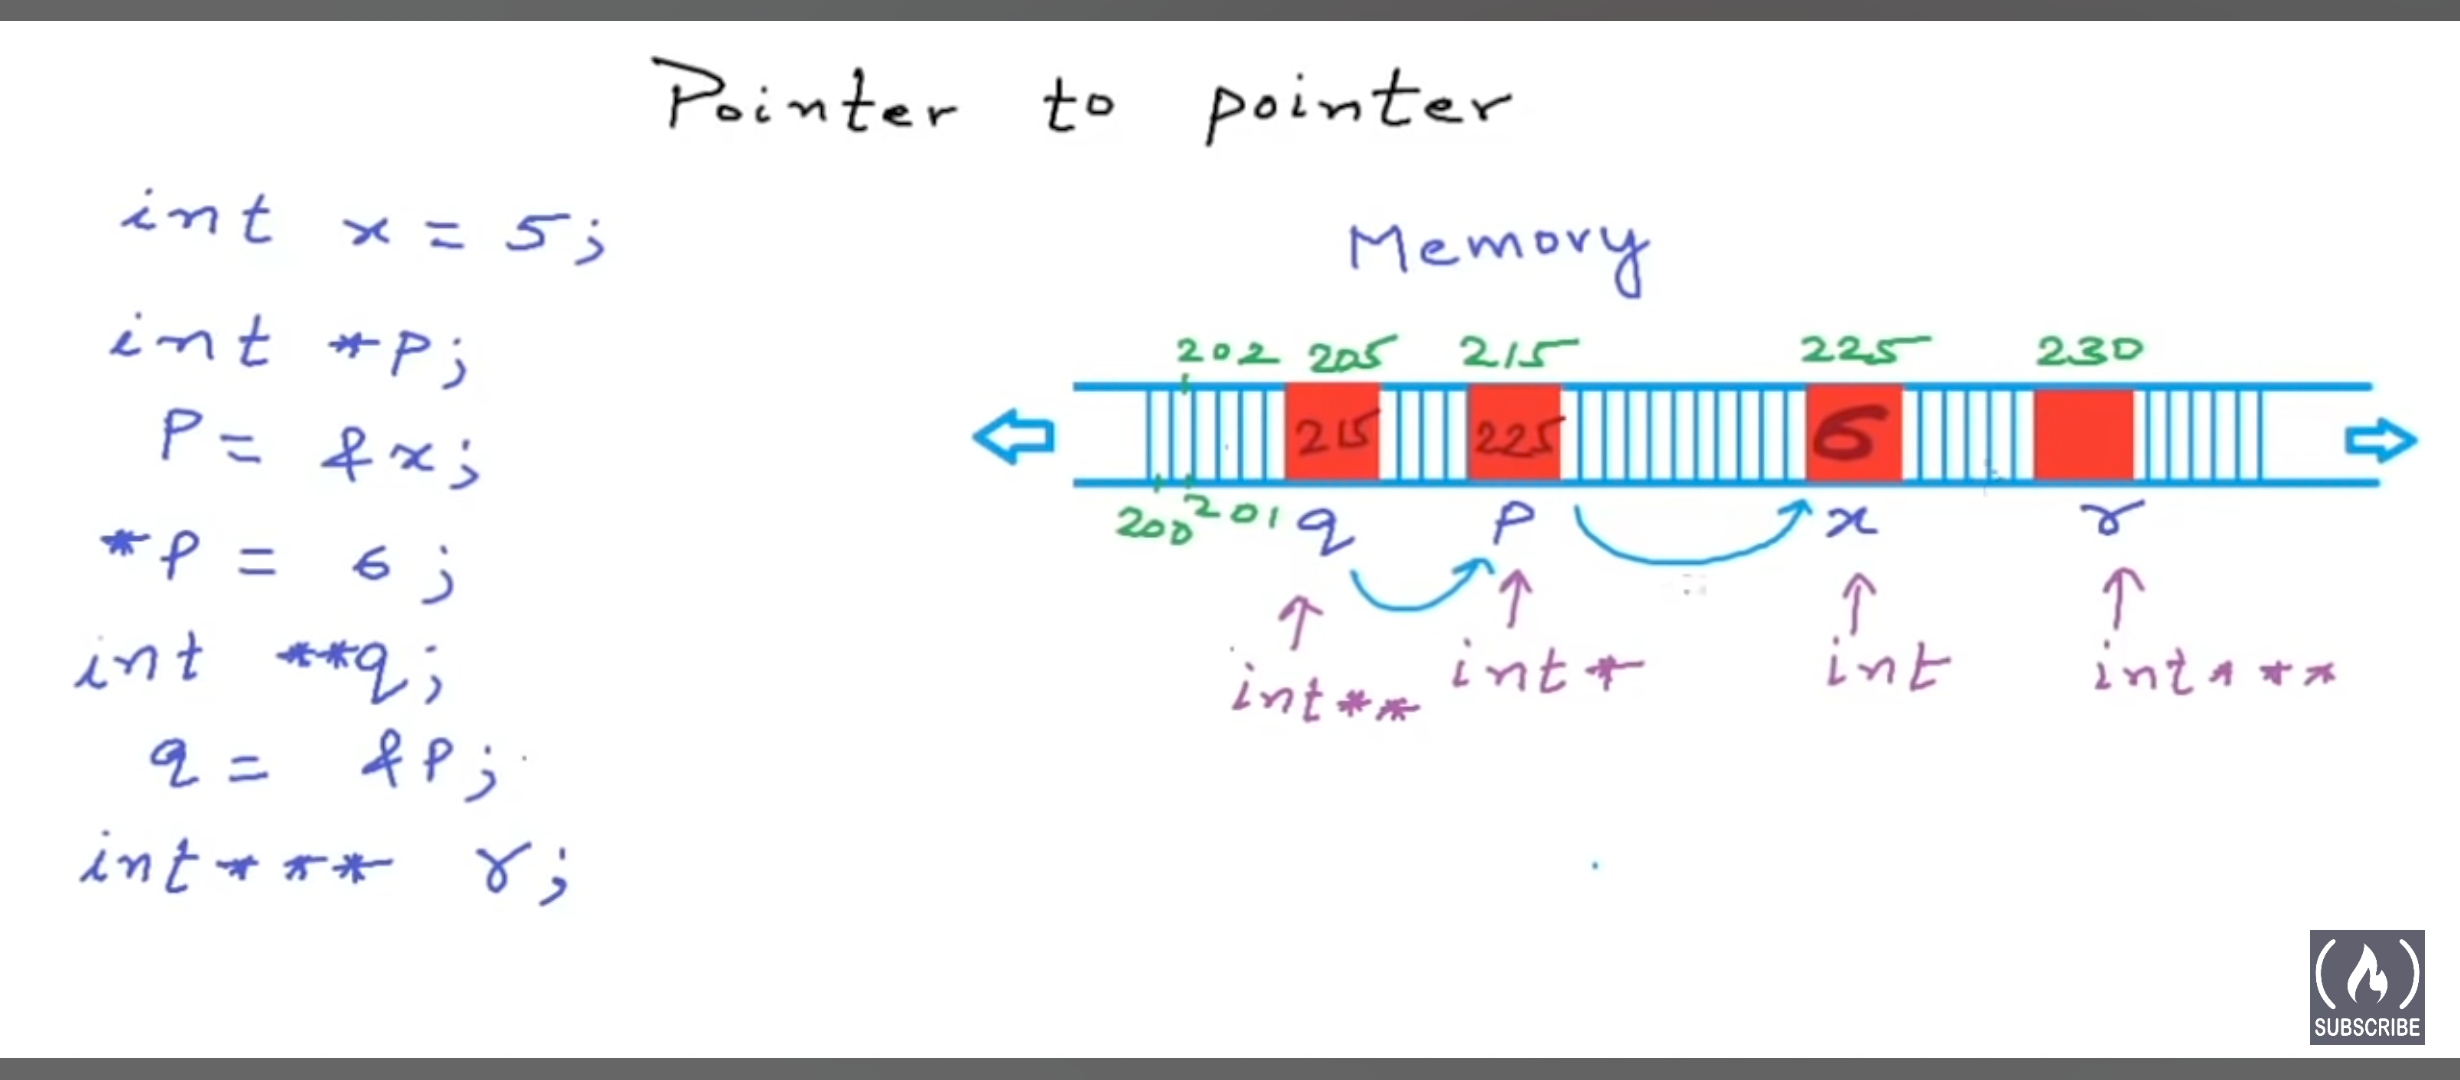 Pointer to pointer
int x = 5;
int *p;
p = &x;
*p = 6;
int **q;
q = &p;
int*** r;
Memory
202 205 215 225 230
215 225 6
200 201 q p x r
int** int* int int***
SUBSCRIBE